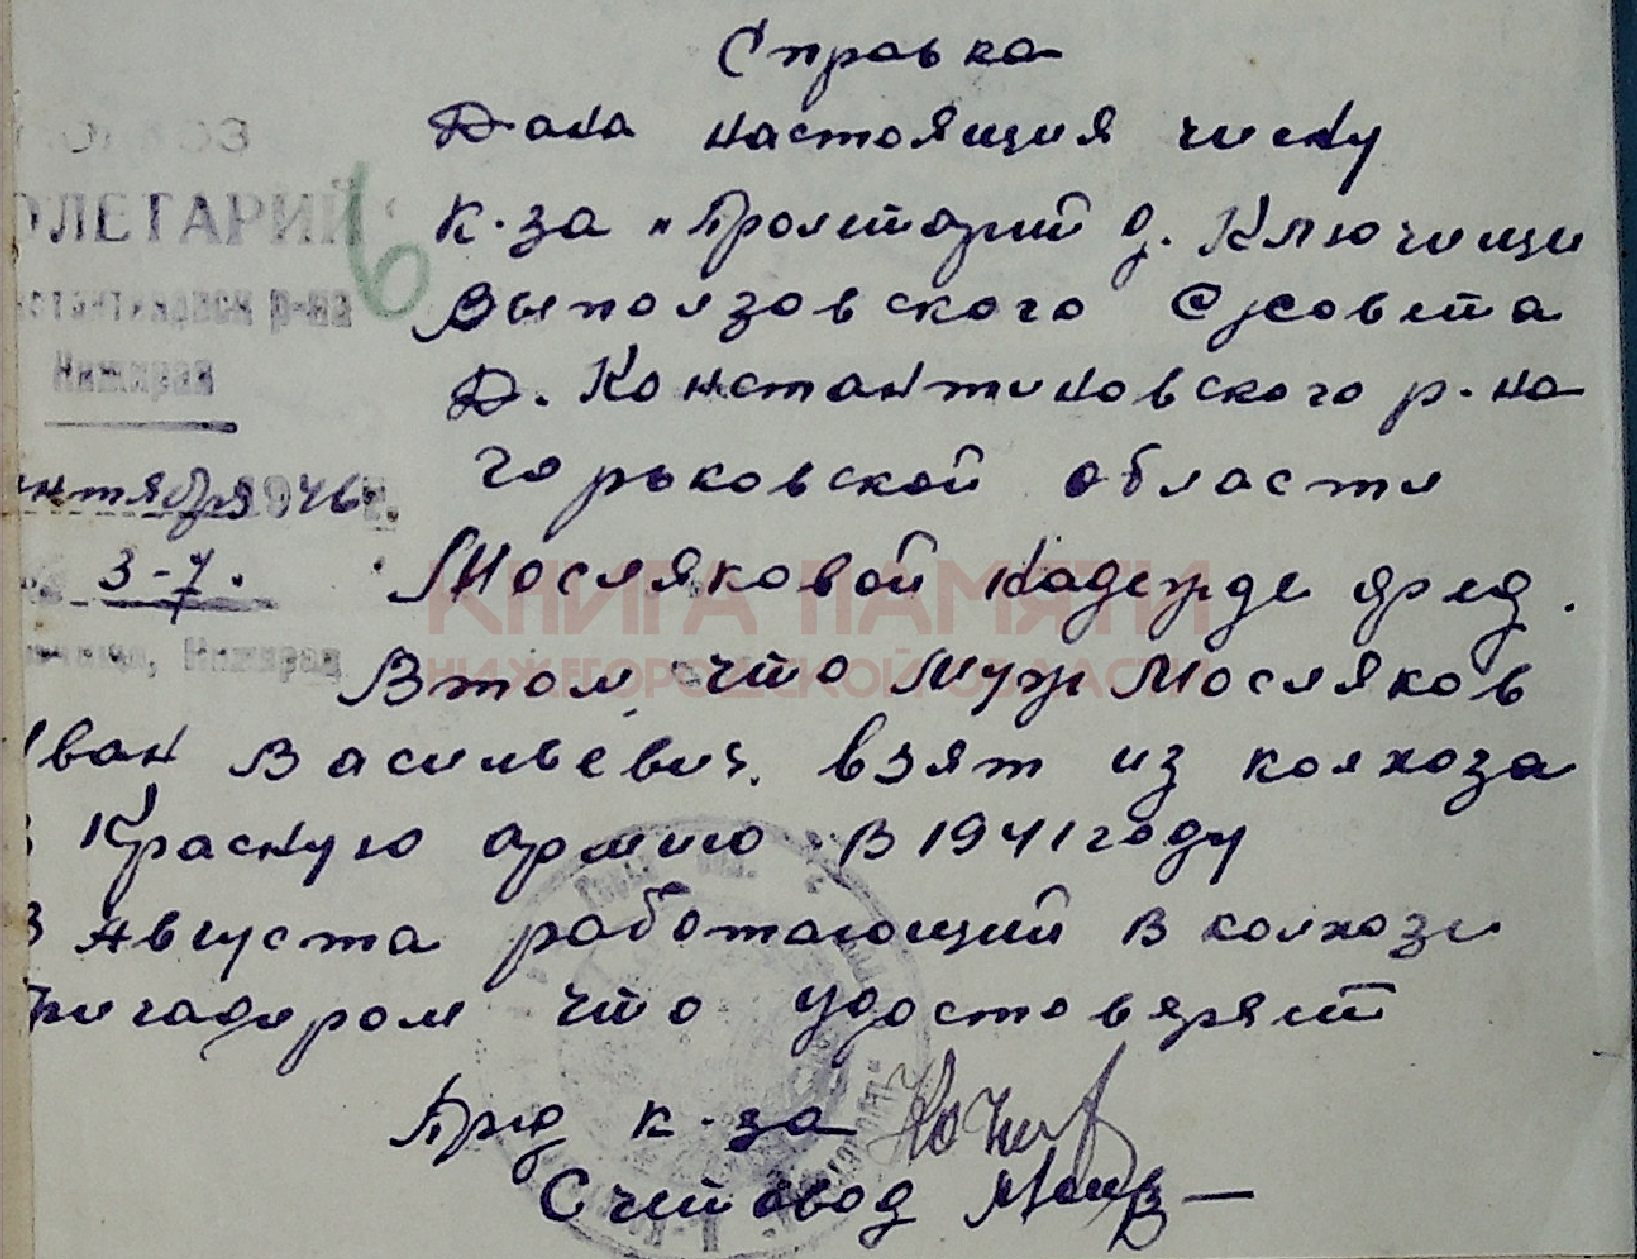 Справка
Дана настоящия члену
к-за "Пролетарий д. Ключищи
Выползовского С/совета
Д. Константиновского р-на
Горьковской области
Мосляковой Надежде Фед.
В том что муж Мосляков
Иван Васильевич. взят из колхоза
в Красную армию в 1941 году
в Августа работающий в колхозе
бригадиром что удостоверяет
Пред к-за
Счетовод
ОЛЕТАРИЙ
р-на
Нижкрая
нтября 1946 г.
3-7.
Нижкрая
6
КНИГА ПАМЯТИ
НИЖЕГОРОДСКОЙ ОБЛАСТИ